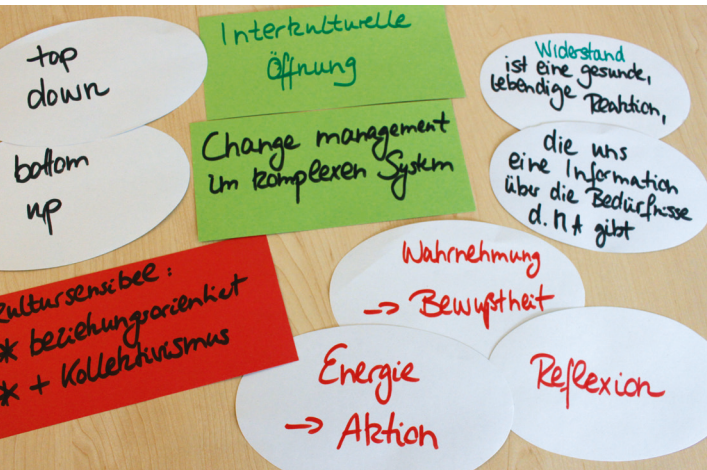 top
down
bottom
up
Interkulturelle
Öffnung
Change management
im komplexen System
Widerstand
ist eine gesunde,
lebendige Reaktion,
die uns
eine Information
über die Bedürfnisse
d. MA gibt
Kultursensibel:
* beziehungsorientiert
* + Kollektivismus
Wahrnehmung
→ Bewußtheit
Energie
→ Aktion
Reflexion